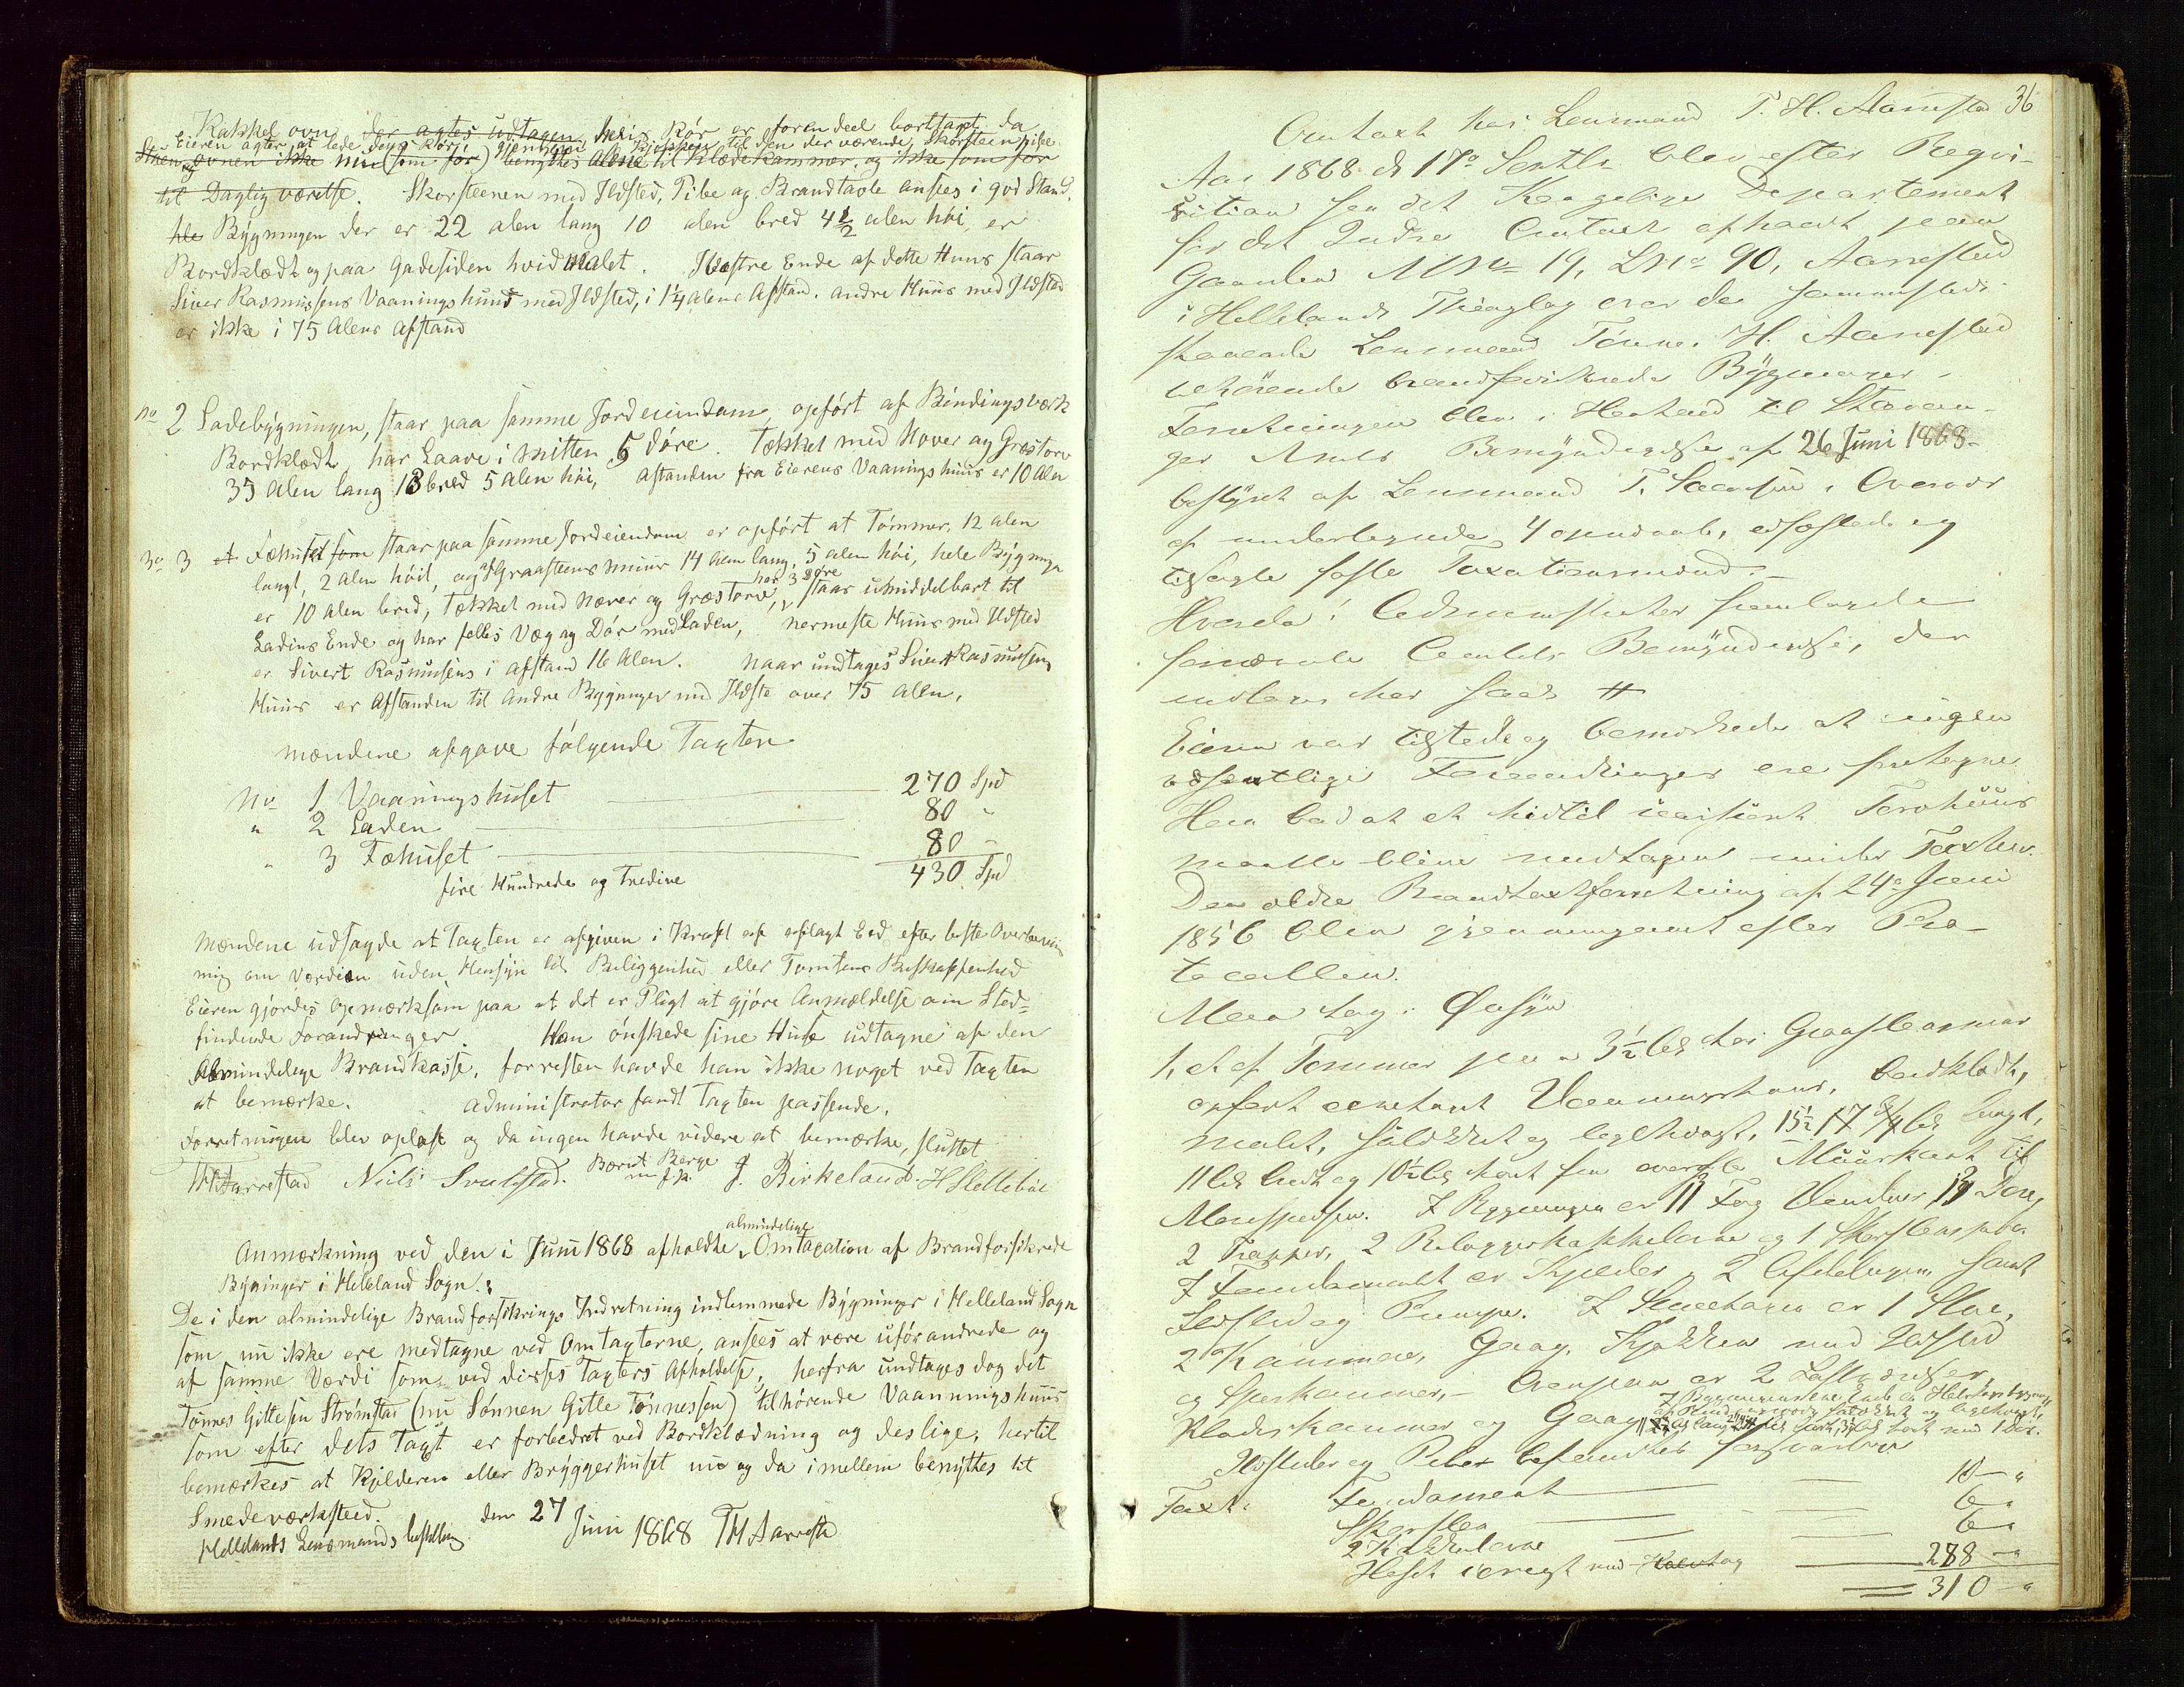 Kakkel ovn der agtes udtagen hvis Rör er foren deel borttagt da
Eieren agter at lede dens Rör gjennem Kjøkken til den der værende Skorsteenspibe
og ovnen ikke nu (som för) benyttes alene til Klædekammer, og ikke som för
til Dagligværelse. Skorsteenen med Ildsted, Pibe og Brandtavle ansees i god Stand.
hele Bÿgningen der er 22 alen lang 10 alen bred 4 1/2 alen höi, er
Bordklædt og paa Gadesiden hvid Malet. Westre Ende af dette Huus staar
Siver Rasmussens Vaaningshuus med Ildsted, i 1 1/4 Alens Afstand. andre Huus med Ildsted
er ikke i 75 Alens afstand
No 2 Ladebÿgningen, staar paa samme Jordeiendom, opfört af Bindingsværk
Bordklædt, har Laave i Mitten 5 döre. Tækket med Næver og Græstorv
35 Alen lang 13 bred 5 Alen höi, astanden fra Eierens Vaaningshuus er 10 Alen
No 3 Fæhuset som staar paa samme Jordeiendom er opfört at Tömmer, 12 alen
langt, 2 alen höit, og Graasteens muur 14 Alen lang, 5 alen höi, hele Bÿgningen
har 3 Döre
er 10 alen bred, Tækket med Næver og Græstorv, staar umiddelbart til
Ladens Ende og har felles Væg og Dör med Laden, nermeste Huus med Ildsted
er Sivert Rasmusens i afstand 16 Alen. Naar undtages Sivert Rasmussens
Huus er Afstanden til Andre Bygninger med Ildste over 75 Alen.
Mændene afgave fölgende Taxten
No 1 Vaaningshuset 270 Spd
" 2 Laden 80 "
" 3 Fæhuset 80 "
fire Hundrede og Tredive 430 Spd
Mændene udsagde at Taxten er afgiven i Kraft af aflagt Eed efter beste Overbeviis
ning om Værdien uden Hensyn til Beliggenhed eller Tomtens Beskaffenhed
Eieren gjordes opmærksom paa at det er Pligt at gjöre Anmældelse om Sted=
findende Forandringer. Han önskede sine Huse udtagne af den
Almindelige Brandkasse, forresten havde han ikke noget ved Taxten
at bemærke. Administrator fandt Taxten passende.
Forretningen blev oplæst og da ingen havde videre at bemærke, sluttet
TH Aarrestad Niels Svalestad. Bernt Berge m f. P. J. Birkeland. H Slettebøe
Anmærkning ved den i Juni 1868 afholdte almindelige Omtaxation af Brandforsikrede
Bÿgninger i Helleland Sogn:
De i den almindelige Brandforsikrings Indretning indlemmede Bÿgninger i Helleland Sogn
som nu ikke ere medtagne ved Omtaxterne, ansees at være uforandrede og
af samme Værdi som ved disses Taxters Afholdelse, herfra undtages dog det
Tönnes Gittesen Strömstad (nu Sönnen Gitle Tönnessen) tilhörende Vaaningshuus
som efter dets Taxt er forbedret ved Bordklædning og deslige, hertil
bemærkes at Kjelderen eller Brÿggerhuset nu og da imellem benÿttes til
Smedeværksted.
Hellelands Lensmands bestilling den 27 Juni 1868 TH Aarresta
36
Omtaxt hos Lensmand T. H. Aarrestad
Aar 1868 d 17de Septbr blev efter Reqvi-
sition fra det Kongelige Departement
for det Indre Omtaxt afholdt paa
Gaarden MNo 19, LNo 90, Aarrestad
i Hellelands Thinglag over de sammesteds
staaende Lensmand Tönnes H. Aarrestad
tilhörende brandforsikrede Bÿgninger.
Forretningen blev i Henhold til Stavan-
ger Amts Bemÿndigelse af 26 Juni 1868
bestÿret af Lensmand T.
af underlagrede 4 opnævnte, edfæstede og
tilsagte faste Taxationsmænd.
Hvorda: Administrator fremlagde
fornævnte Amts Bemÿndigelse, der
indtages her saal. #
Eieren var tilstede og bemærkede at ingen
væsentlige Forandringer ere foretagne
Han bad at et hidtil uassureret Torvhuus
maatte blive medtagen under Taxten.
Den ældre Brandtaxtforretning af 24de Juni
1856 blev gjennemgaaet efter Pro-
tocollen.
Man tog i Öiesÿn
1, et af Tömmer paa en 3 1/2 Al höi Graasteensmur
opfört Vaaningshuus, bordklædt,
malet, og teglhængt, 15 1/2 Al langt,
11 Al bredt og 10 1/2 Al höit fra överste Muurkant til
Mönespidsen. I Bÿgningen er 11 Fag Vinduer, 19 Döre,
2 Trapper, 2 Kakkelovne og 1 Skorsteenspibe
I Fundamentet er Kjelder i 2 Afdelinger samt
Ildsted og Pumpe. I Stueetagen er 1 Stue,
2 Kammere, Gang, Kjökken med Ildsted
og Spiskammer. Ovenpaa er 2 Loftsværelser
Klædekammer og Gang
Ildsteder og Piber befandtes forsvarlige
Taxt: Fundament 10 "
Skorsten 6 "
2 Kakkelovne 6 "
Huset iövrigt med Halvtag 288 "
310 "